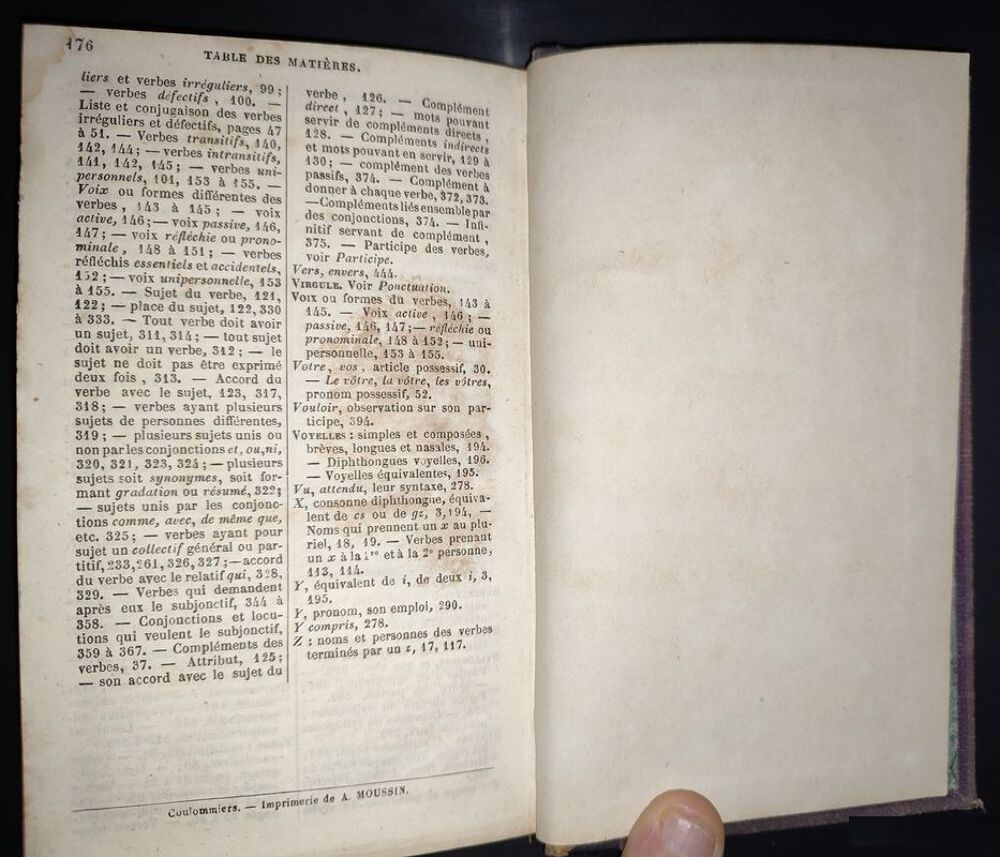 176
TABLE DES MATIÈRES.
liers et verbes irréguliers, 99;
— verbes défectifs, 100. —
Liste et conjugaison des verbes
irréguliers et défectifs, pages 47
à 51. — Verbes transitifs, 140,
142, 144; — verbes intransitifs,
141, 142, 145; — verbes uni-
personnels, 101, 153 à 155. —
Voix ou formes différentes des
verbes, 143 à 145; — voix
active, 146; — voix passive, 146,
147; — voix réfléchie ou prono-
minale, 148 à 151; — verbes
réfléchis essentiels et accidentels,
152; — voix unipersonnelle, 153
à 155. — Sujet du verbe, 121,
122; — place du sujet, 122, 330
à 333. — Tout verbe doit avoir
un sujet, 311, 314; — tout sujet
doit avoir un verbe, 312; — le
sujet ne doit pas être exprimé
deux fois, 313. — Accord du
verbe avec le sujet, 123, 317,
318; — verbes ayant plusieurs
sujets de personnes différentes,
319; — plusieurs sujets unis ou
non par les conjonctions et, ou, ni,
320, 321, 323, 324; — plusieurs
sujets soit synonymes, soit for-
mant gradation ou résumé, 322;
— sujets unis par les conjonc-
tions comme, avec, de même que,
etc. 325; — verbes ayant pour
sujet un collectif général ou par-
titif, 233, 261, 326, 327; — accord
du verbe avec le relatif qui, 328,
329. — Verbes qui demandent
après eux le subjonctif, 344 à
358. — Conjonctions et locu-
tions qui veulent le subjonctif,
359 à 367. — Compléments des
verbes, 37. — Attribut, 125;
— son accord avec le sujet du
verbe, 126. — Complément
direct, 127; — mots pouvant
servir de compléments directs,
128. — Compléments indirects
et mots pouvant en servir, 129 à
130; — complément des verbes
passifs, 374. — Complément à
donner à chaque verbe, 372, 373.
— Compléments liés ensemble par
des conjonctions, 374. — Infi-
nitif servant de complément,
375. — Participe des verbes,
voir Participe.
Vers, envers, 444.
VIRGULE. Voir Ponctuation.
VOIX ou formes du verbes, 143 à
145. — Voix active, 146; —
passive, 146, 147; — réfléchie ou
pronominale, 148 à 152; — uni-
personnelle, 153 à 155.
Votre, vos, article possessif, 30.
— Le vôtre, la vôtre, les vôtres,
pronom possessif, 52.
Vouloir, observation sur son par-
ticipe, 394.
VOYELLES: simples et composées,
brèves, longues et nasales, 194.
— Diphthongues voyelles, 196.
— Voyelles équivalentes, 195.
Vu, attendu, leur syntaxe, 278.
X, consonne diphthongue, équiva-
lent de cs ou de gz, 3, 194, —
Noms qui prennent un x au plu-
riel, 18, 19. — Verbes prenant
un x à la 1re et à la 2e personne,
113, 114.
Y, équivalent de i, de deux i, 3,
195.
Y, pronom, son emploi, 290.
Y compris, 278.
Z: noms et personnes des verbes
terminés par un z, 17, 117.
Coulommiers. — Imprimerie de A. MOUSSIN.